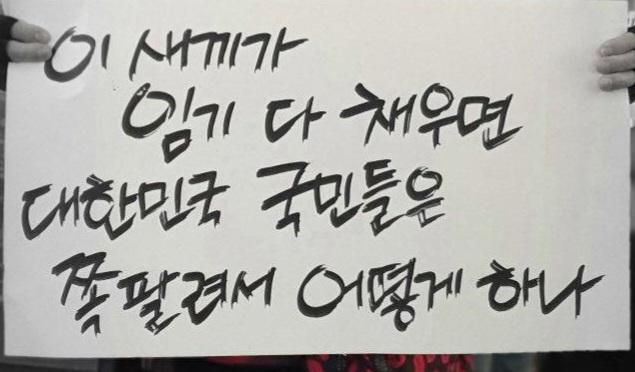 이 새끼가
임기 다 채우면
대한민국 국민들은
쪽팔려서 어떻게 하나